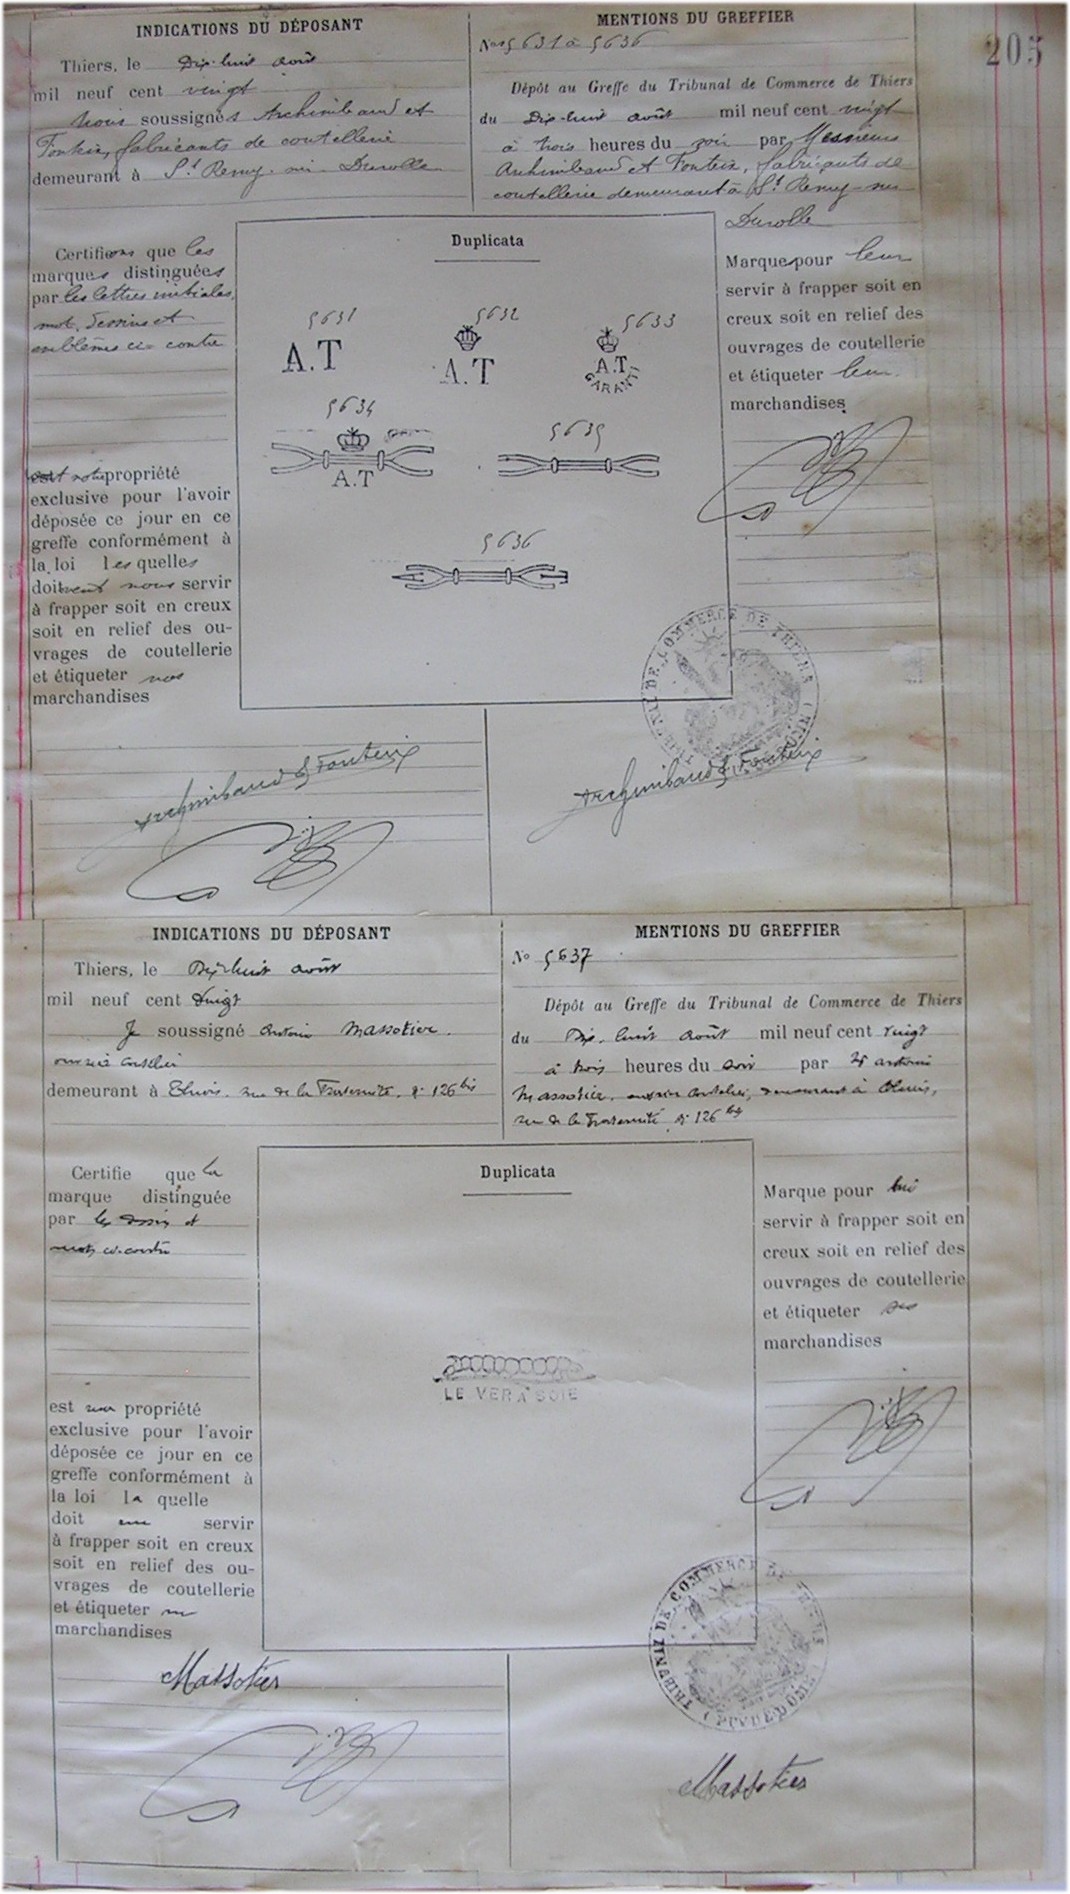 205
INDICATIONS DU DÉPOSANT
Thiers, le Dix-huit août
mil neuf cent vingt
Nous soussignés Archimbaud et
Fonteix, fabricants de coutellerie
demeurant à St Remy-sur-Durolle
Certifions que les
marques distinguées
par les lettres initiales,
mot, dessins et
emblèmes ci-contre
sont notre propriété
exclusive pour l'avoir
déposée ce jour en ce
greffe conformément à
la loi lesquelles
doivent nous servir
à frapper soit en creux
soit en relief des ou-
vrages de coutellerie
et étiqueter nos
marchandises
Archimbaud & Fonteix
MENTIONS DU GREFFIER
Nos 5631 à 5636
Dépôt au Greffe du Tribunal de Commerce de Thiers
du Dix-huit août mil neuf cent vingt
à trois heures du soir par Messieurs
Archimbaud et Fonteix, fabricants de
coutellerie demeurant à St Remy-sur
Durolle
Duplicata
5631
A.T
5632
A.T
5633
A.T
GARANTI
5634
A.T
5635
5636
Marques pour leur
servir à frapper soit en
creux soit en relief des
ouvrages de coutellerie
et étiqueter leurs
marchandises
TRIBUNAL DE COMMERCE DE THIERS
Archimbaud & Fonteix
INDICATIONS DU DÉPOSANT
Thiers, le Dix-huit août
mil neuf cent vingt
Je soussigné Antoine Massotier
ouvrier coutelier
demeurant à Thiers, rue de la Fraternité, no 126 bis
Certifie que la
marque distinguée
par le dessin et
mots ci-contre
est ma propriété
exclusive pour l'avoir
déposée ce jour en ce
greffe conformément à
la loi la quelle
doit me servir
à frapper soit en creux
soit en relief des ou-
vrages de coutellerie
et étiqueter mes
marchandises
Massotier
MENTIONS DU GREFFIER
No 5637
Dépôt au Greffe du Tribunal de Commerce de Thiers
du Dix-huit août mil neuf cent vingt
à trois heures du soir par Mr Antoine
Massotier, ouvrier coutelier, demeurant à Thiers,
rue de la Fraternité no 126 bis
Duplicata
LE VER À SOIE
Marque pour lui
servir à frapper soit en
creux soit en relief des
ouvrages de coutellerie
et étiqueter ses
marchandises
TRIBUNAL DE COMMERCE DE THIERS (PUY-DE-DÔME)
Massotier